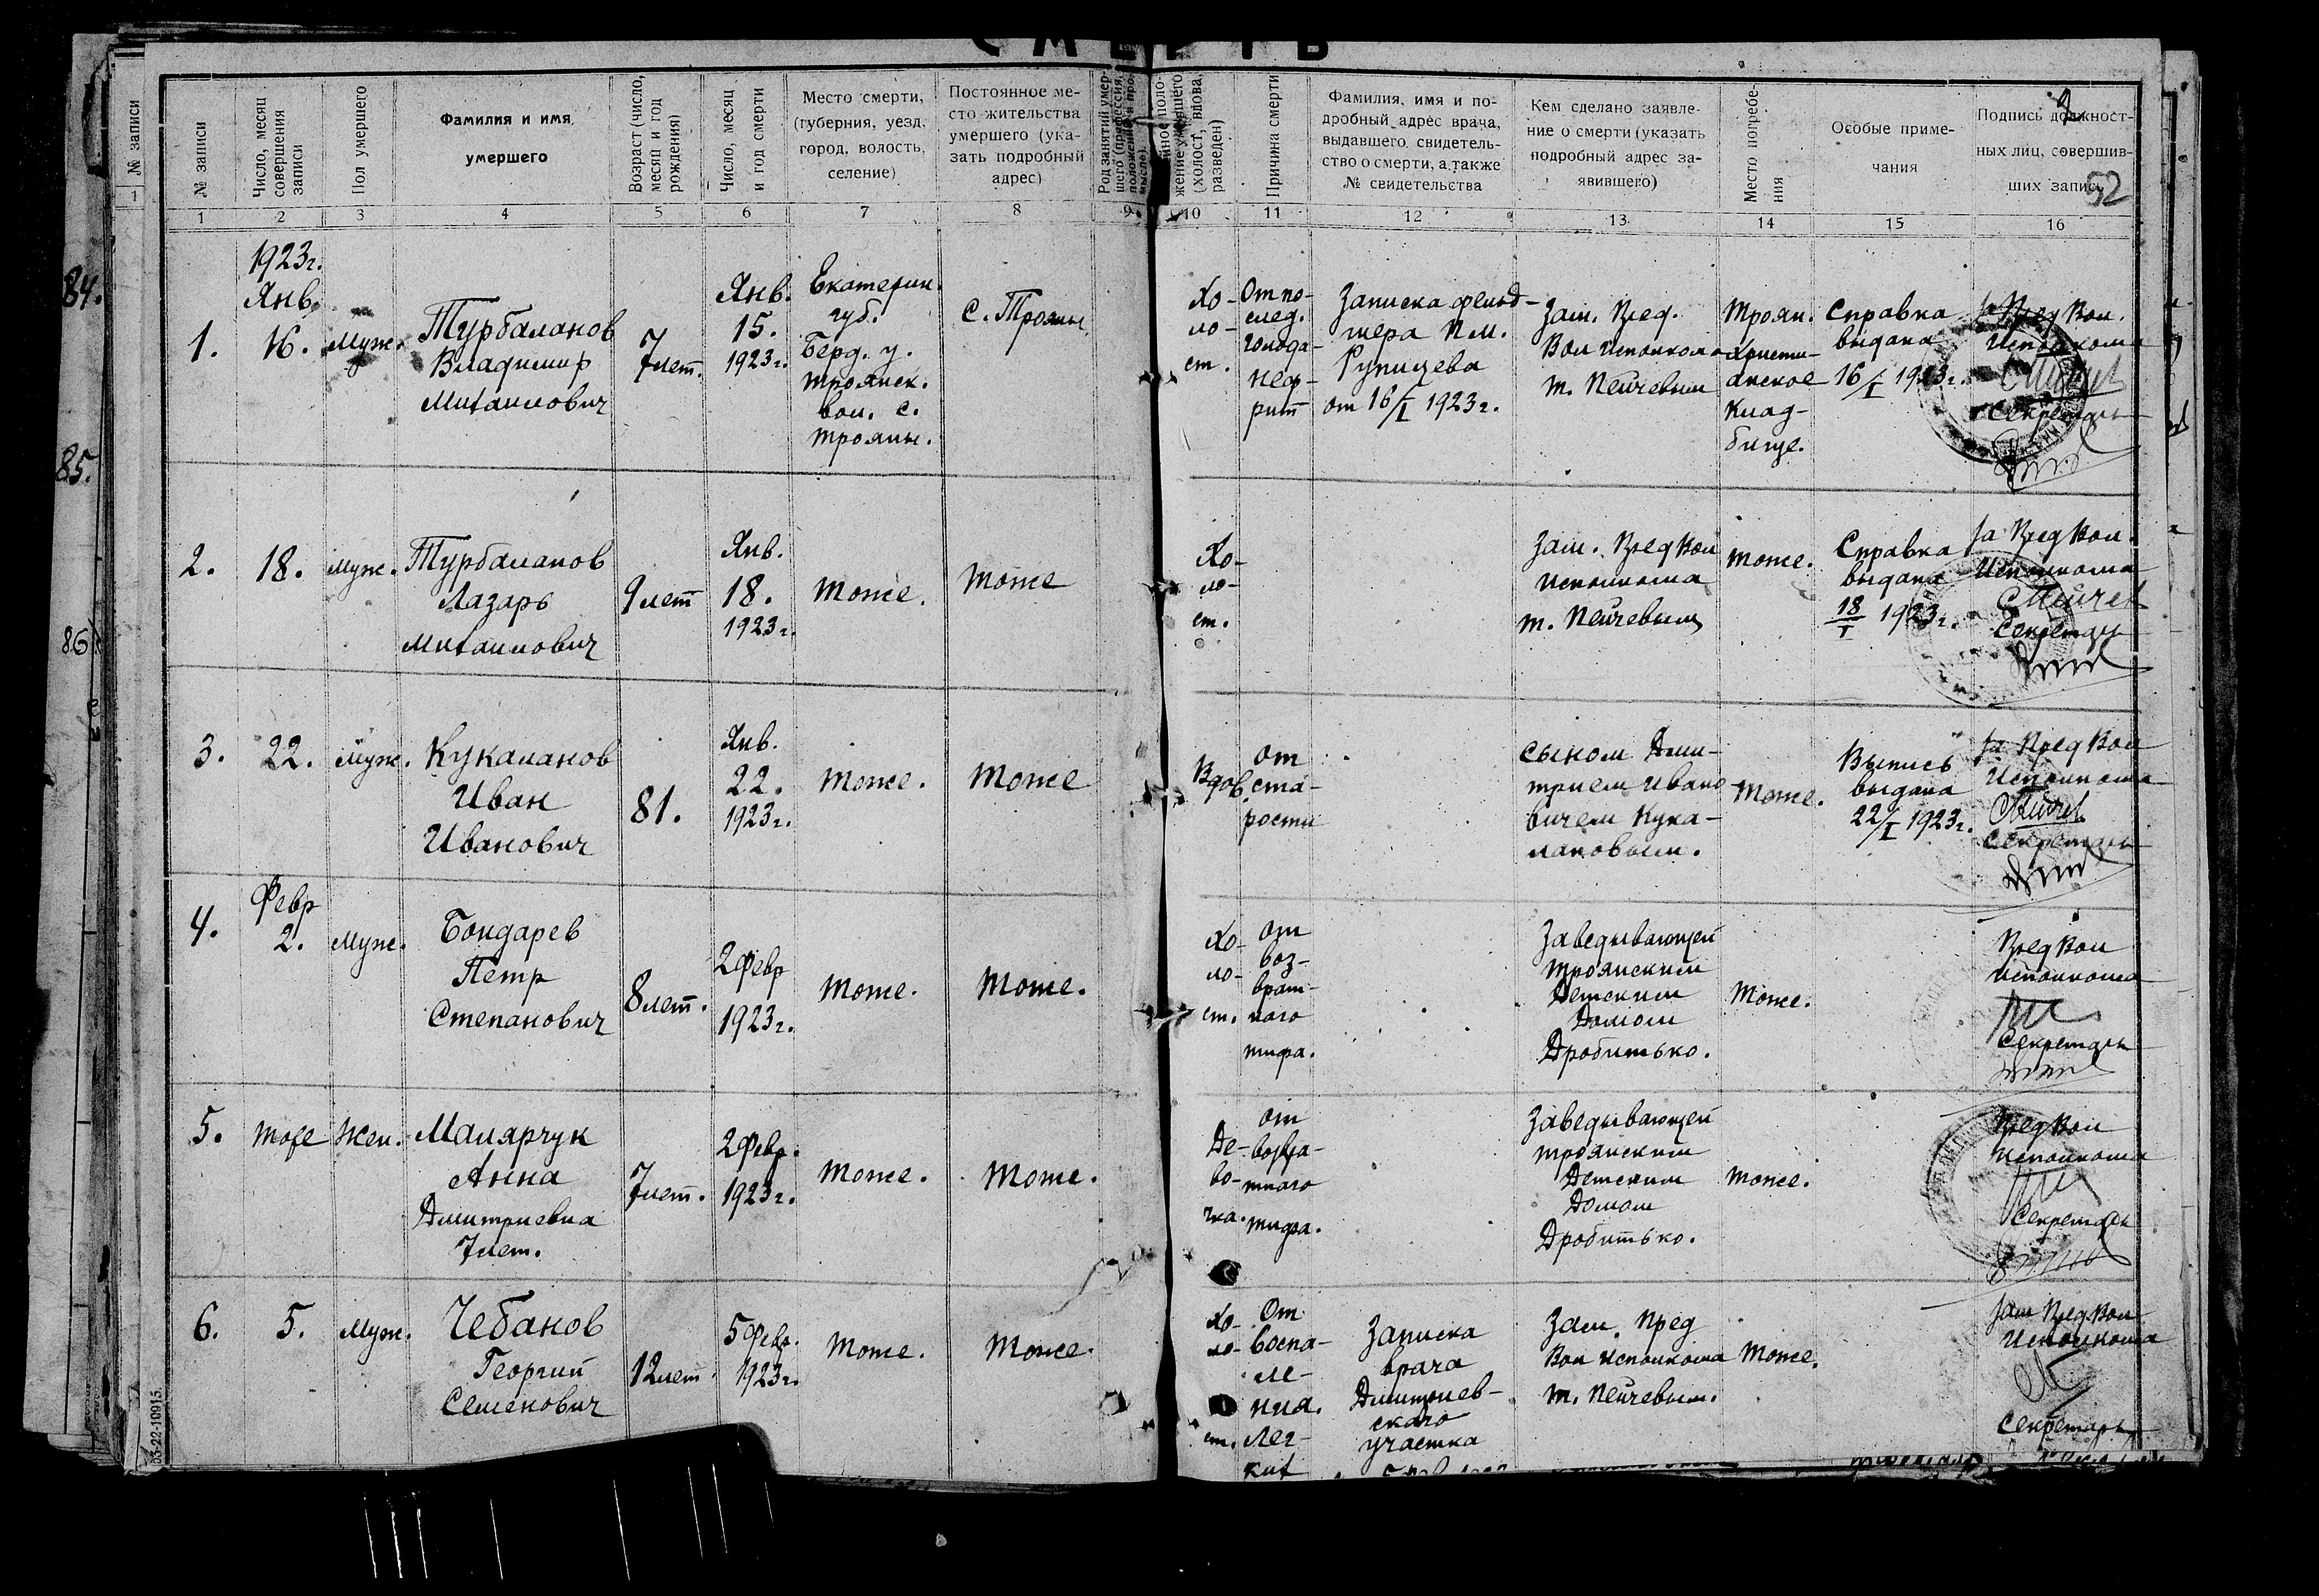 СМЕРТЬ
№ записи
1
84.
85.
86
№ записи
Число, месяц
совершения
записи
Пол умершего
Фамилия и имя
умершего
Возраст (число,
месяц и год
рождения)
Число, месяц
и год смерти
Место смерти,
(губерния, уезд,
город, волость,
селение)
Постоянное ме-
сто жительства
умершего (ука-
зать подробный
адрес)
Род занятий умер-
шего (профессия,
положение в про-
мысле).
жение умершего
(холост, вдова,
разведен)
Причина смерти
Фамилия, имя и по-
дробный адрес врача,
выдавшего свидетель-
ство о смерти, а также
№ свидетельства
Кем сделано заявле-
ние о смерти (указать
подробный адрес за-
явившего)
Место погребе-
ния
Особые приме-
чания
Подпись должност-
ных лиц, совершив-
ших запись
52
1 2 3 4 5 6 7 8 9 10 11 12 13 14 15 16
1.
1923г.
Янв.
16.
Муж.
Турбаланов
Владимир
Михайлович
7
7лет.
Янв.
15.
1923г.
Екатерин.
губ.
Берд. у.
троянск.
вол. с.
трояны.
с. Трояны
Хо-
ло-
ст.
От по-
след.
голода-
неф-
рит
Записка фельд-
шера П.М.
от 16/I 1923г.
Зам. Пред.
Вол исполкома
т. Пейчевым
Троян.
христи-
анское
клад-
бище.
Справка
выдана
16/I 1923г.
За Пред Вол.
Исполкома
Секретарь
2.
18.
Муж.
Турбаланов
Лазарь
Михайлович
9лет
Янв.
18.
1923г.
тоже.
тоже
Хо-
ло-
ст.
Зам. Пред Вол
исполкома
т. Пейчевым
тоже.
Справка
выдана
18/I 1923г.
За Пред Вол.
Исполкома
Секретарь
3.
22.
Муж.
Кукаланов
Иван
Иванович
81.
Янв.
22.
1923г.
тоже.
тоже
Вдов.
от
ста-
рости
сыном Дми-
трием Ивано
вичем Кука-
лановым.
тоже.
Выпись
выдана
22/I 1923г.
За Пред Вол
Исполкома
Секретарь
4.
Февр
2.
Муж.
Бондарев
Петр
Степанович
8лет.
2 Февр
1923г.
тоже.
тоже.
Хо-
ло-
ст.
от
воз-
врат-
ного
тифа.
Заведывающей
троянским
Детским
Домом
Дробитько.
тоже.
Пред Вол
исполкома
Секретарь
5.
тоже
Жен.
Малярчук
Анна
Дмитриевна
7лет.
7лет.
2 Февр.
1923г.
тоже.
тоже.
Де-
во-
чка.
от
возвра-
тного
тифа.
Заведывающей
троянским
Детским
Домом
Дробитько.
тоже.
Пред Вол
Исполкома
Секретарь
6.
5.
Муж.
Чебанов
Георгий
Семенович
12лет
5 Февр.
1923г.
тоже.
тоже.
Хо-
ло-
ст.
От
воспа-
ле-
ния.
лег-
ких
Записка
врача
Дмитриев-
ского
участка
Зам. Пред
Вол исполкома
т. Пейчевым.
тоже.
Зам Пред Вол
Исполкома
Секретарь
53-22-10915.